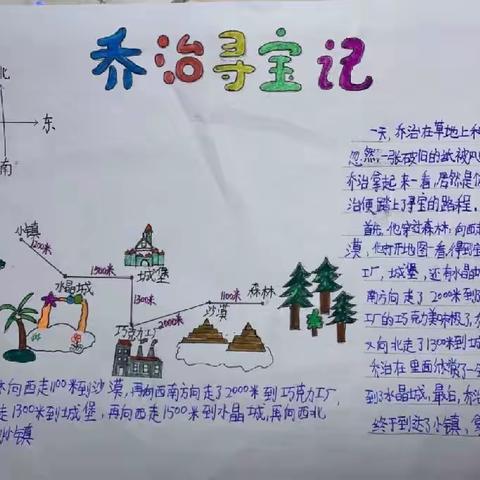 乔治寻宝记
北
东
南
小镇
1200米
水晶城
1500米
城堡
1300米
巧克力工厂
2000米
沙漠
1100米
森林
一天,乔治在草地上
忽然,一张破旧的纸被风
乔治拿起来一看,居然是
治便踏上了寻宝的路程。
首先,他穿过森林,向西走
漠,他打开地图一看,得到
工厂,城堡,还有水晶
南方向走了2000米到
工厂的巧克力美味极了,
又向北走了1300米到城
乔治在里面休息了一
到了水晶城,最后,乔治
终于到达了小镇,
向西走1100米到沙漠,再向西南方向走了2000米到巧克力工厂,
走1300米到城堡,再向西走1500米到水晶城,再向西北
到小镇